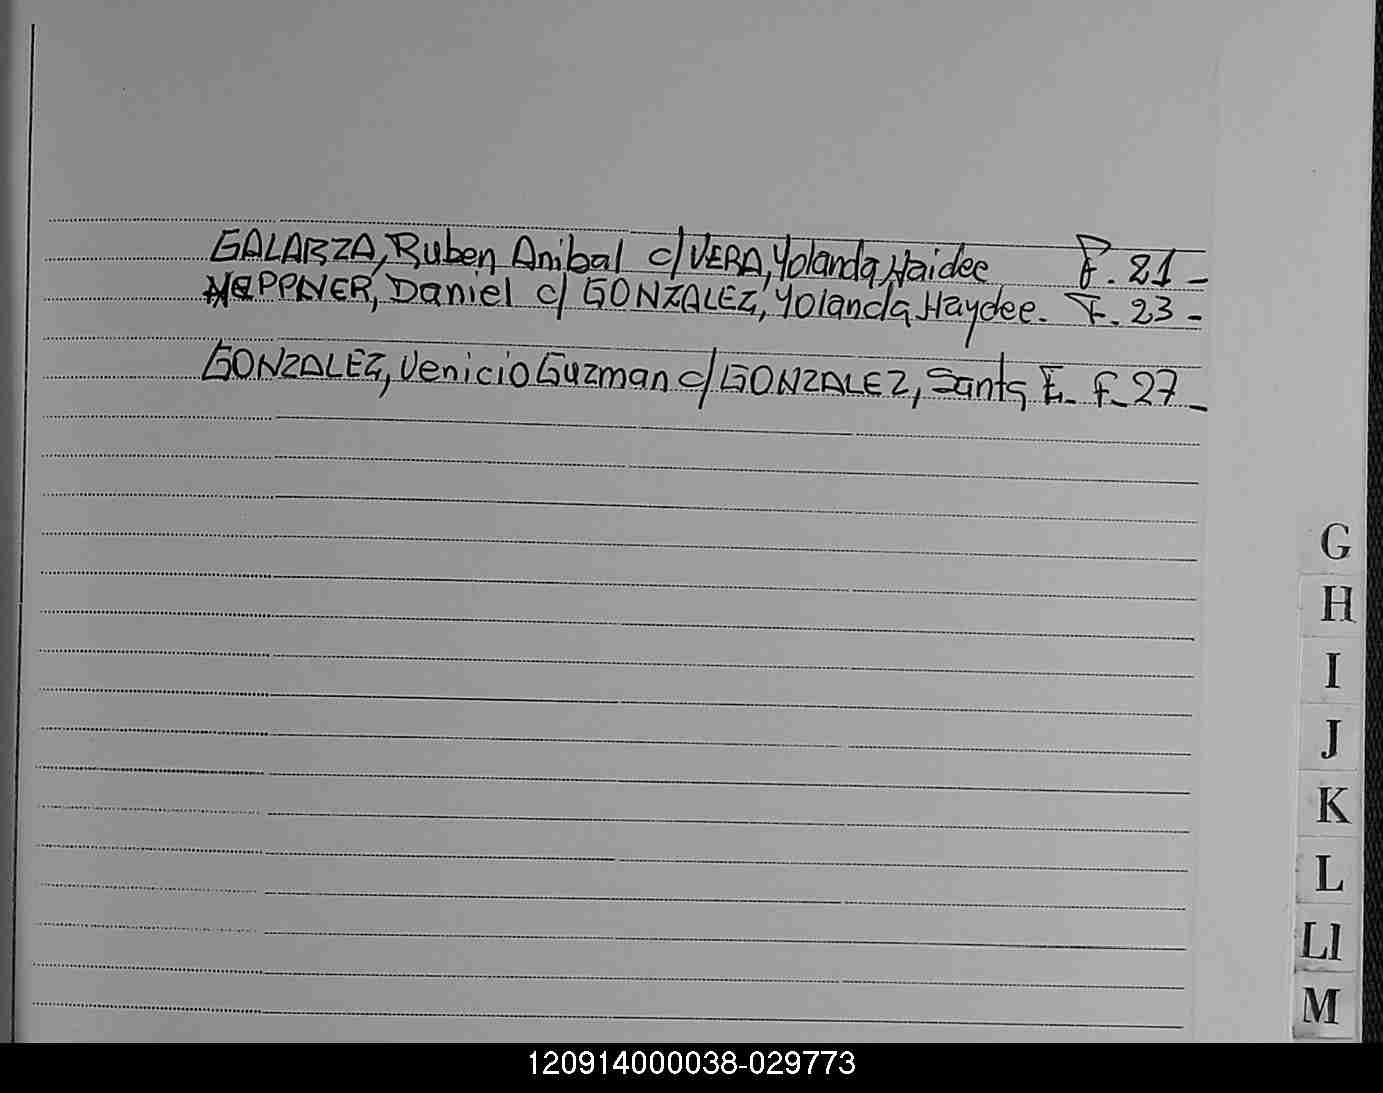 GALARZA, Ruben Anibal c/ VERA, Yolanda Haidee F. 21 -
PPNER, Daniel c/ GONZALEZ, Yolanda Haydee. F. 23 -
GONZALEZ, Venicio Guzman c/ GONZALEZ, Santa E. F. 27 -
G
H
I
J
K
L
Ll
M
120914000038-029773